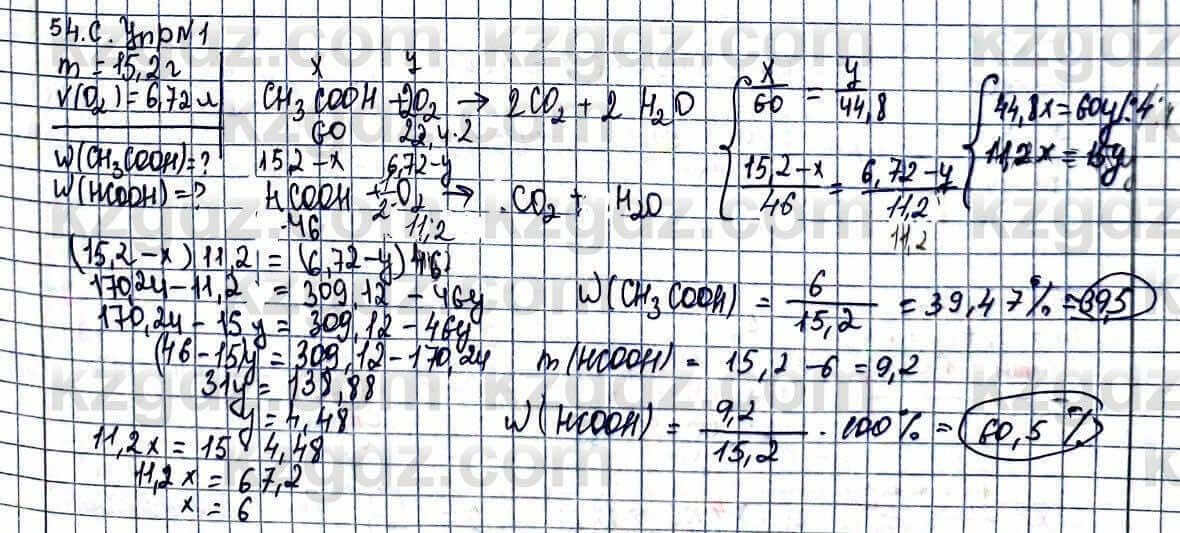 54.С. Упр№1
m = 15,2 г
V(O₂) = 6,72 л
W(CH₃COOH) = ?
W(HCOOH) = ?
x y
CH₃COOH + 2O₂ → 2CO₂ + 2 H₂O
60 22,4·2
15,2-x 6,72-y
HCOOH + 1/2 O₂ → CO₂ + H₂O
46 11,2
x/60 = y/44,8
(15,2-x)/46 = (6,72-y)/11,2
11,2
44,8x = 60y |:4
11,2x = 15y
(15,2-x) 11,2 = (6,72-y) 46
170,24 - 11,2 = 309,12 - 46y
170,24 - 15y = 309,12 - 46y
(46-15)y = 309,12 - 170,24
31y = 138,88
y = 4,48
11,2x = 15 · 4,48
11,2x = 67,2
x = 6
W(CH₃COOH) = 6/15,2 = 39,47% = 39,5
m(HCOOH) = 15,2 - 6 = 9,2
W(HCOOH) = 9,2/15,2 · 100% = 60,5%
kzgdz.com